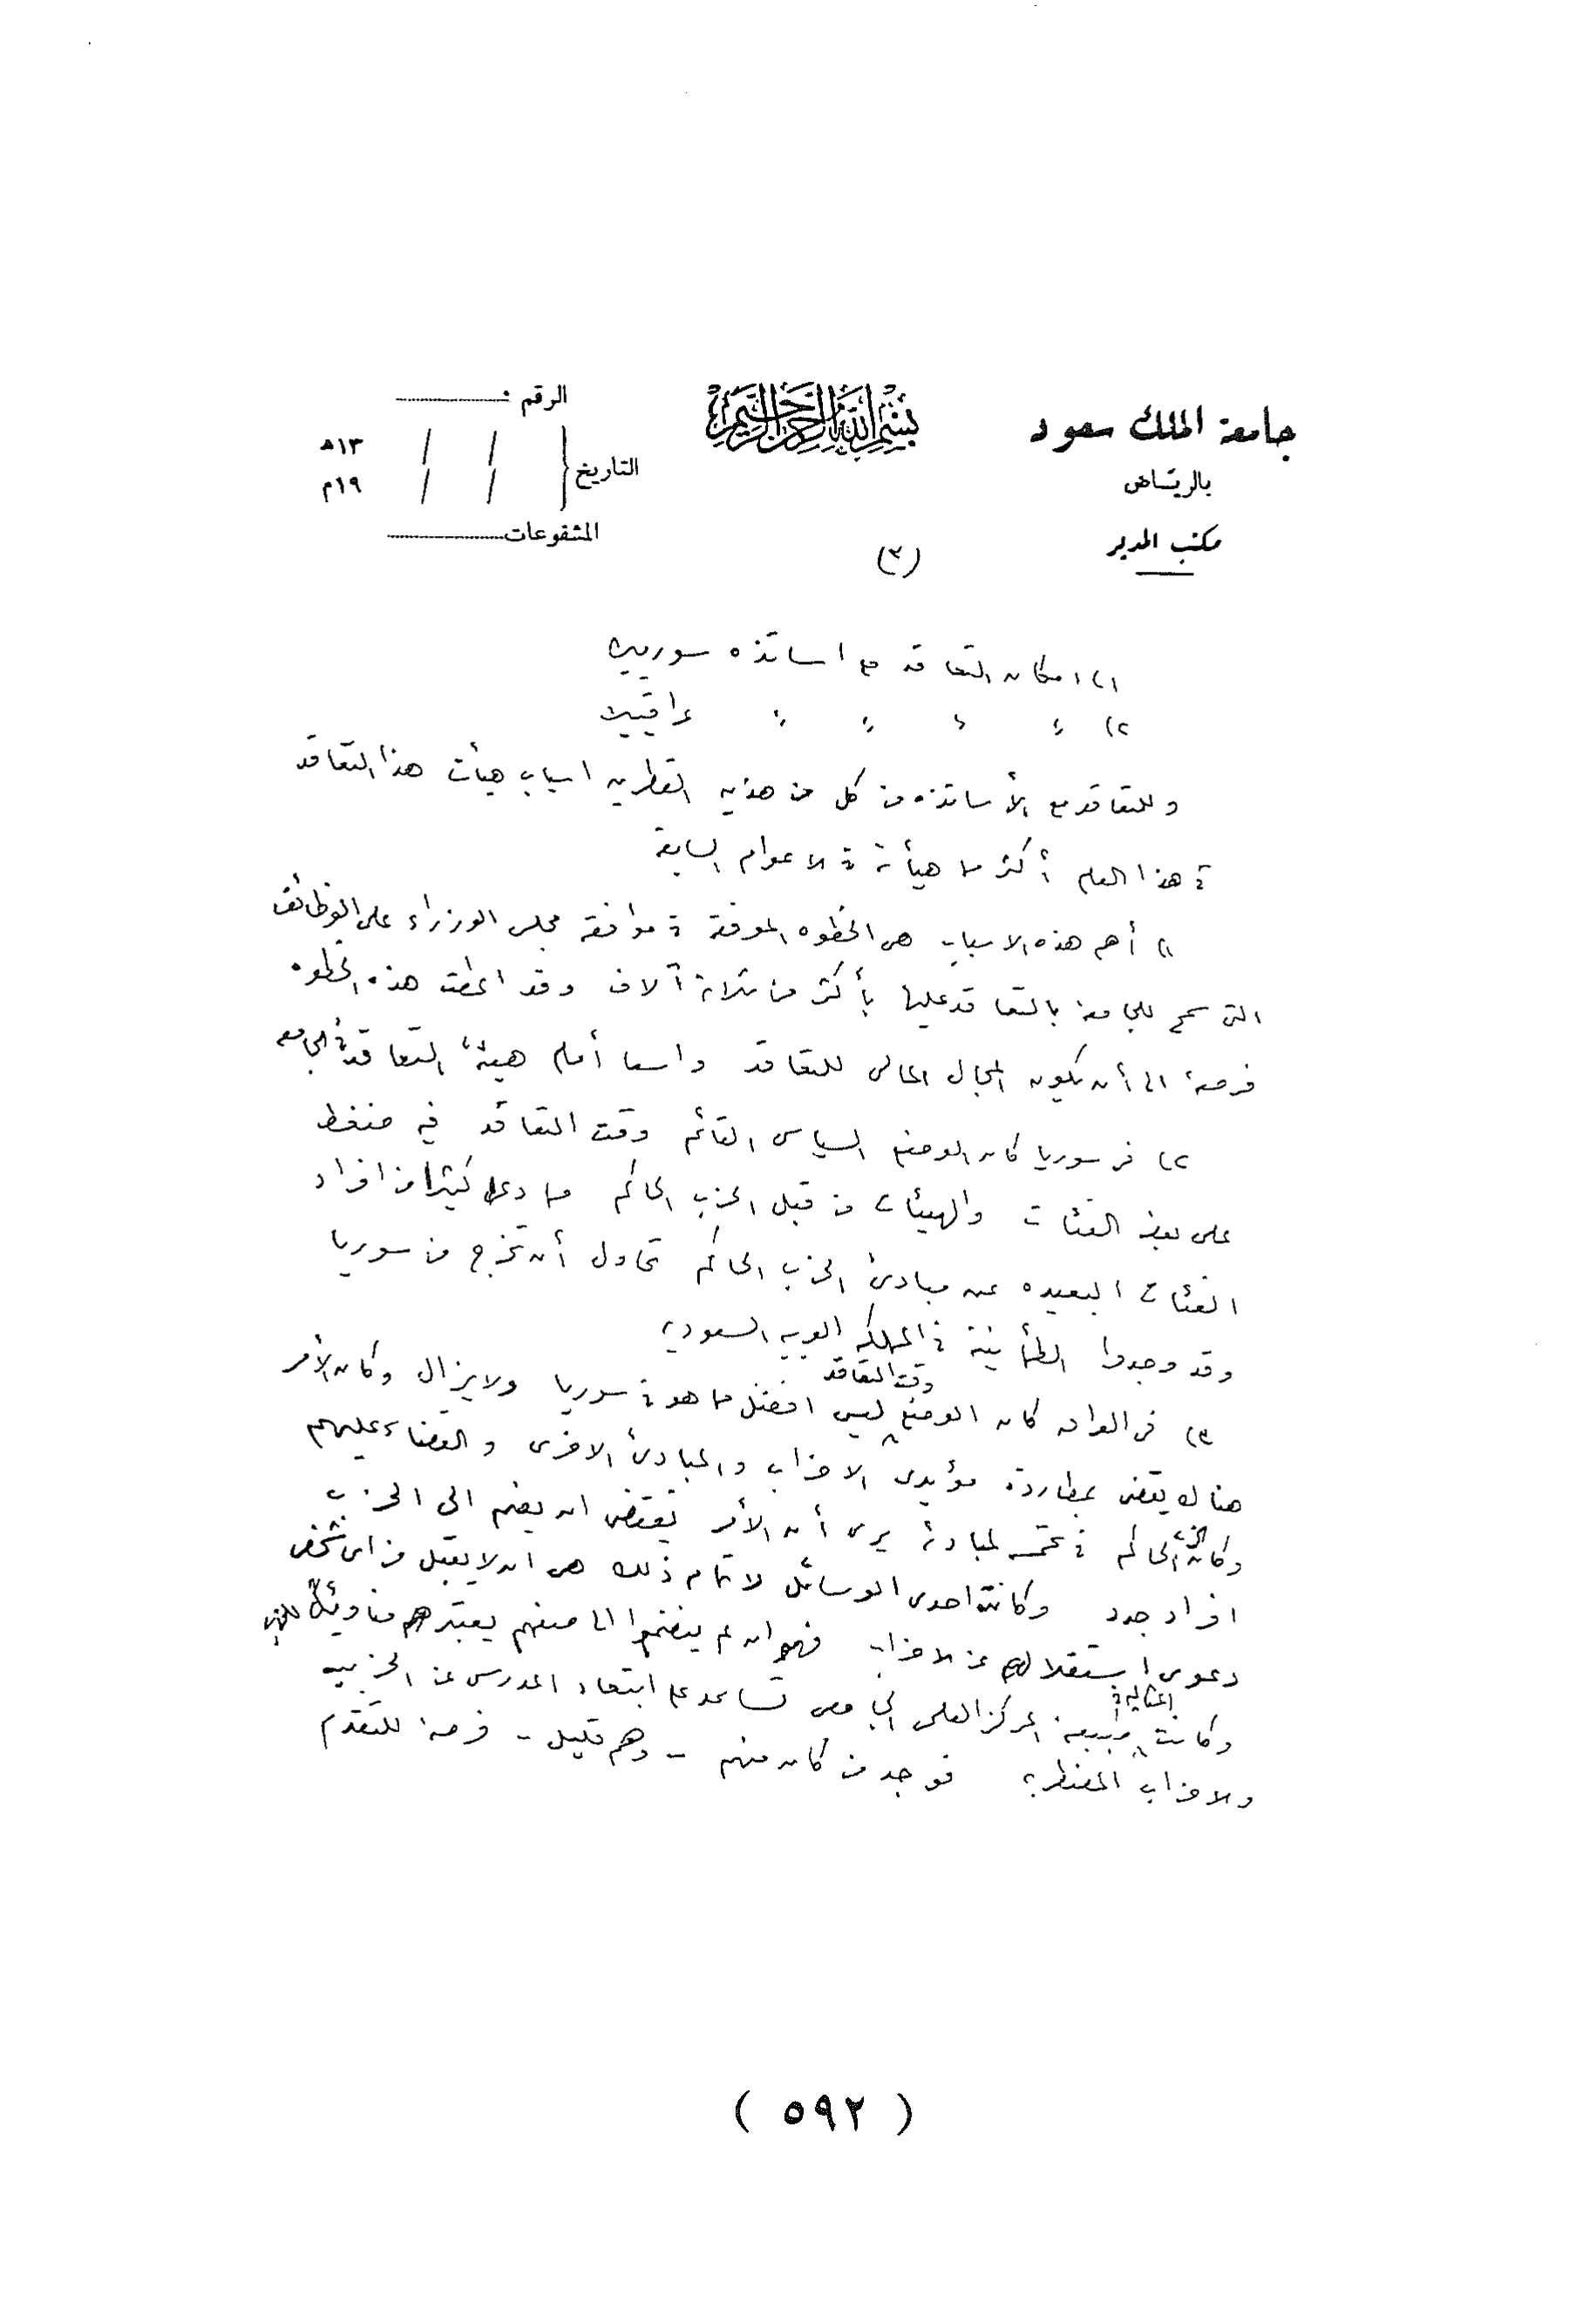 جامعة الملك سعود
بالرياض
مكتب المدير
بسم الله الرحمن الرحيم
الرقم :
التاريخ
/ / ١٣هـ
/ / ١٩م
المشفوعات
(٣)
١) امكان التعاقد مع اساتذه سوريين
٢) " " " " عراقيين
وللتعاقد مع الأساتذه من كل من هذين القطرين اسباب هيأت هذا التعاقد
في هذا العام أكثر مما هيأته في الاعوام السابقة
١) أهم هذه الاسباب هى الخطوه الموفقة في موافقة مجلس الوزراء على الوظائف
التى سمح للجامعة بالتعاقد عليها بأكثر من ثلاثة آلاف وقد اعطت هذه الخطوه
فرصة الى أن يكون المجال المالى للتعاقد واسعا أمام هيئة التعاقد في الجامعه
٢) في سوريا كان الوضع السياسى القائم وقت التعاقد فيه ضغط
على بعض الفئات والهيئات من قبل الحزب الحاكم مما دعا كثيرا من افراد
الفئات البعيده عن مبادئ الحزب الحاكم تحاول أن تخرج من سوريا
وقد وجدوا الطمأنينة في المملكه العربيه السعوديه
٣) في العراق كان الوضع وقت التعاقد ليس افضل مما هو في سوريا ولا يزال وكان الأمر
هناك يقضى بمطاردة مؤيدى الاحزاب والمبادئ الاخرى والقضاء عليهم
وكان الحزب الحاكم في تحمسه لمبادئه يرى أن الأمر يقتضى ان يضم الى الحزب
افراد جدد وكانت احدى الوسائل لاتمام ذلك هى ان لا يقبل من اى شخص
دعوى استقلاله عن الاحزاب فهو ان لم ينضم الى صفهم يعتبر مناوئا للحزب
وكانت المثاليه في طبيعة المركز العلمى الجامعى تساعد على ابتعاد المدرس عن الحزبيه
والاحزاب المضطربه فوجد من كان منهم - وهم قليل - فرصة للتقدم
( ٥٩٢ )